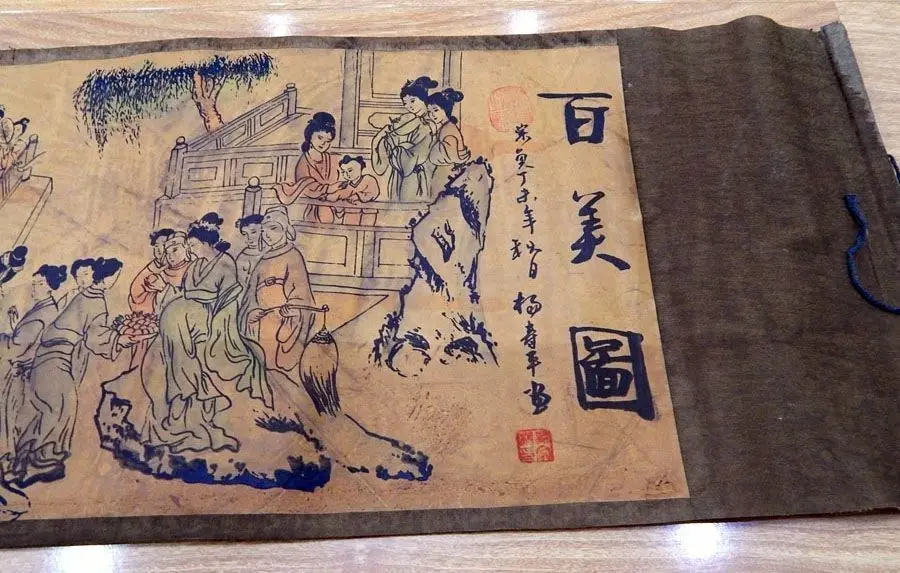 百美圖
丁未年秋日 楊壽平畫